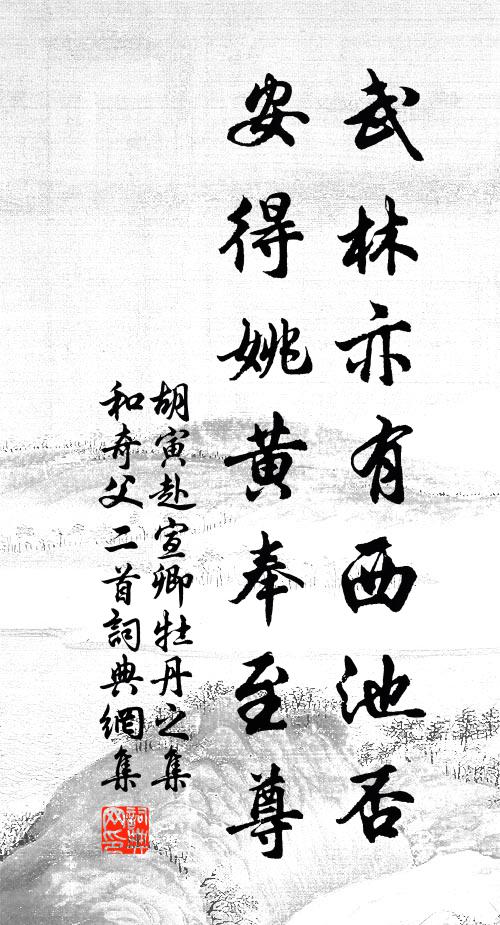 武林亦有西池否
安得姚黄奉至尊
胡寅赴宣卿牡丹之集
和奇父二首詞典網集